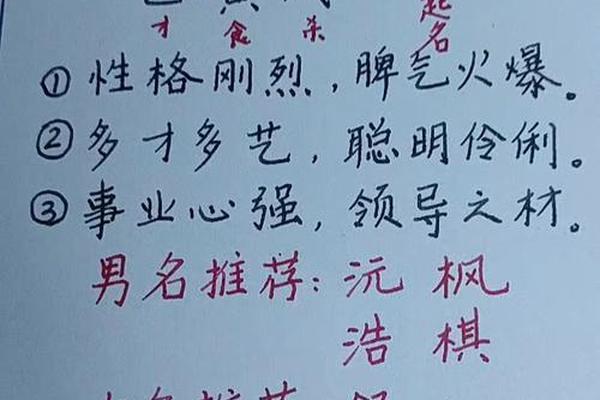 才 食 杀 起名
①性格刚烈,脾气火爆。
②多才多艺,聪明伶俐。
③事业心强,领导之材。
男名推荐:沅 枫
浩 棋